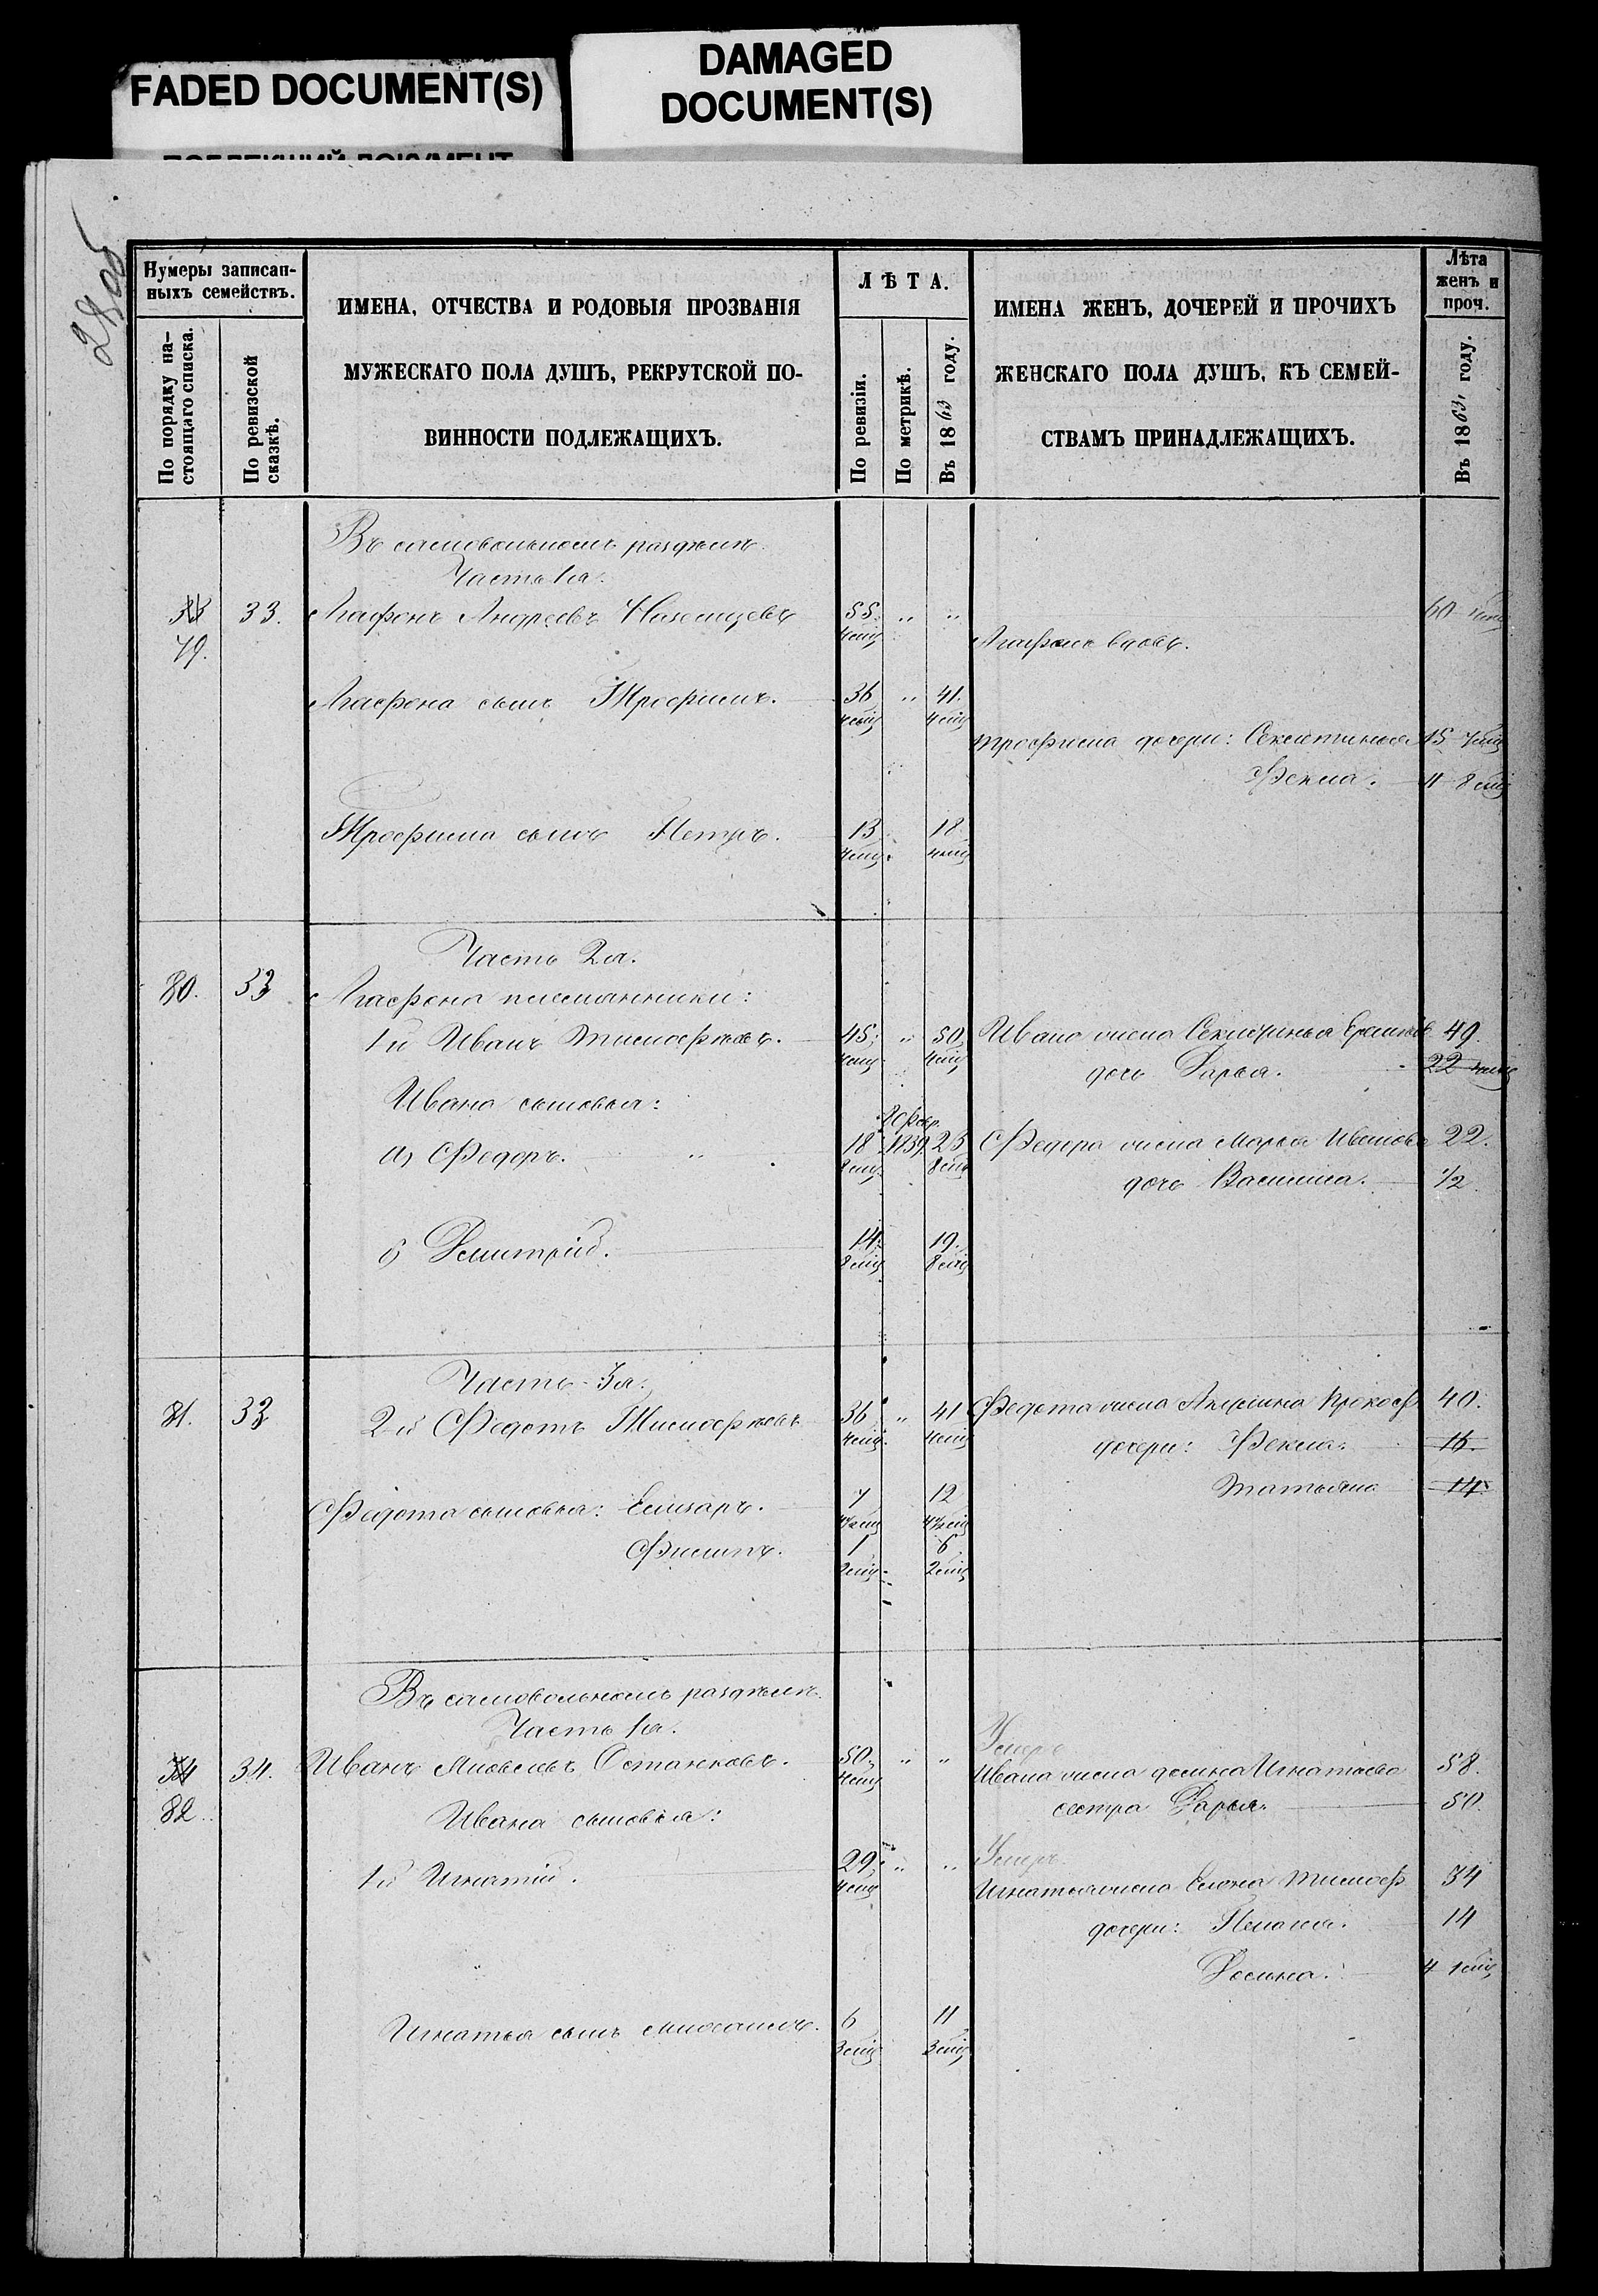 FADED DOCUMENT(S)
DAMAGED
DOCUMENT(S)
Нумеры записан-
ныхъ семействъ.
По порядку на-
стоящаго списка.
По ревизской
сказкѣ.
ИМЕНА, ОТЧЕСТВА И РОДОВЫЯ ПРОЗВАНІЯ
МУЖЕСКАГО ПОЛА ДУШЪ, РЕКРУТСКОЙ ПО-
ВИННОСТИ ПОДЛЕЖАЩИХЪ.
ЛѢТА.
По ревизіи.
По метрикѣ.
Въ 1863 году.
ИМЕНА ЖЕНЪ, ДОЧЕРЕЙ И ПРОЧИХЪ
ЖЕНСКАГО ПОЛА ДУШЪ, КЪ СЕМЕЙ-
СТВАМЪ ПРИНАДЛЕЖАЩИХЪ.
Лѣта
женъ и
проч.
Въ 1863, году.
Въ самовольномъ раздѣлѣ.
Часть 1я.
33. Агафонъ Андреевъ 55. " "
79. вдова.
Агафона сынъ Трофимъ. 36 " 41.
Трофима дочери: 15
Фекла. 11 8 мѣц
Трофима сынъ Петръ. 13 18
Часть 2я.
80. 33 Агафона племянники:
1й Иванъ Тимофѣевъ. 45; " 50 Ивана жена 49.
дочь Дарья. 22
Ивана сыновья:
а) Федоръ. " 18 1839 23 Федора жена Марья Иванова 22.
8 мѣц 8 мѣц дочь Василиса. 1/2
б) Дмитрій. 14. 19.
8 мѣц 8 мѣц
Часть 3я.
81. 33 2й Федотъ Тимофѣевъ 36 " 41 Федота жена Акулина Прокоф 40.
дочери: Фекла. 16.
Татьяна 14.
Федота сыновья: Елизаръ. 7 12
Филипъ. 1 6
2 мѣц 2 мѣц
Въ самовольномъ раздѣлѣ.
Часть 1я.
34 34. Иванъ Яковлевъ Останковъ. 50., " " Умеръ
Ивана жена Домна Игнатьева 58.
82. Ивана сыновья: сестра Дарья. 50.
1й Игнатій. 29; " " Умеръ.
Игнатья жена Елена Тимоф 34
дочери: Пелагея. 14
Домна. 4 1 мѣц
Игнатья сынъ Михаилъ. 6 11
3 мѣц 3 мѣц